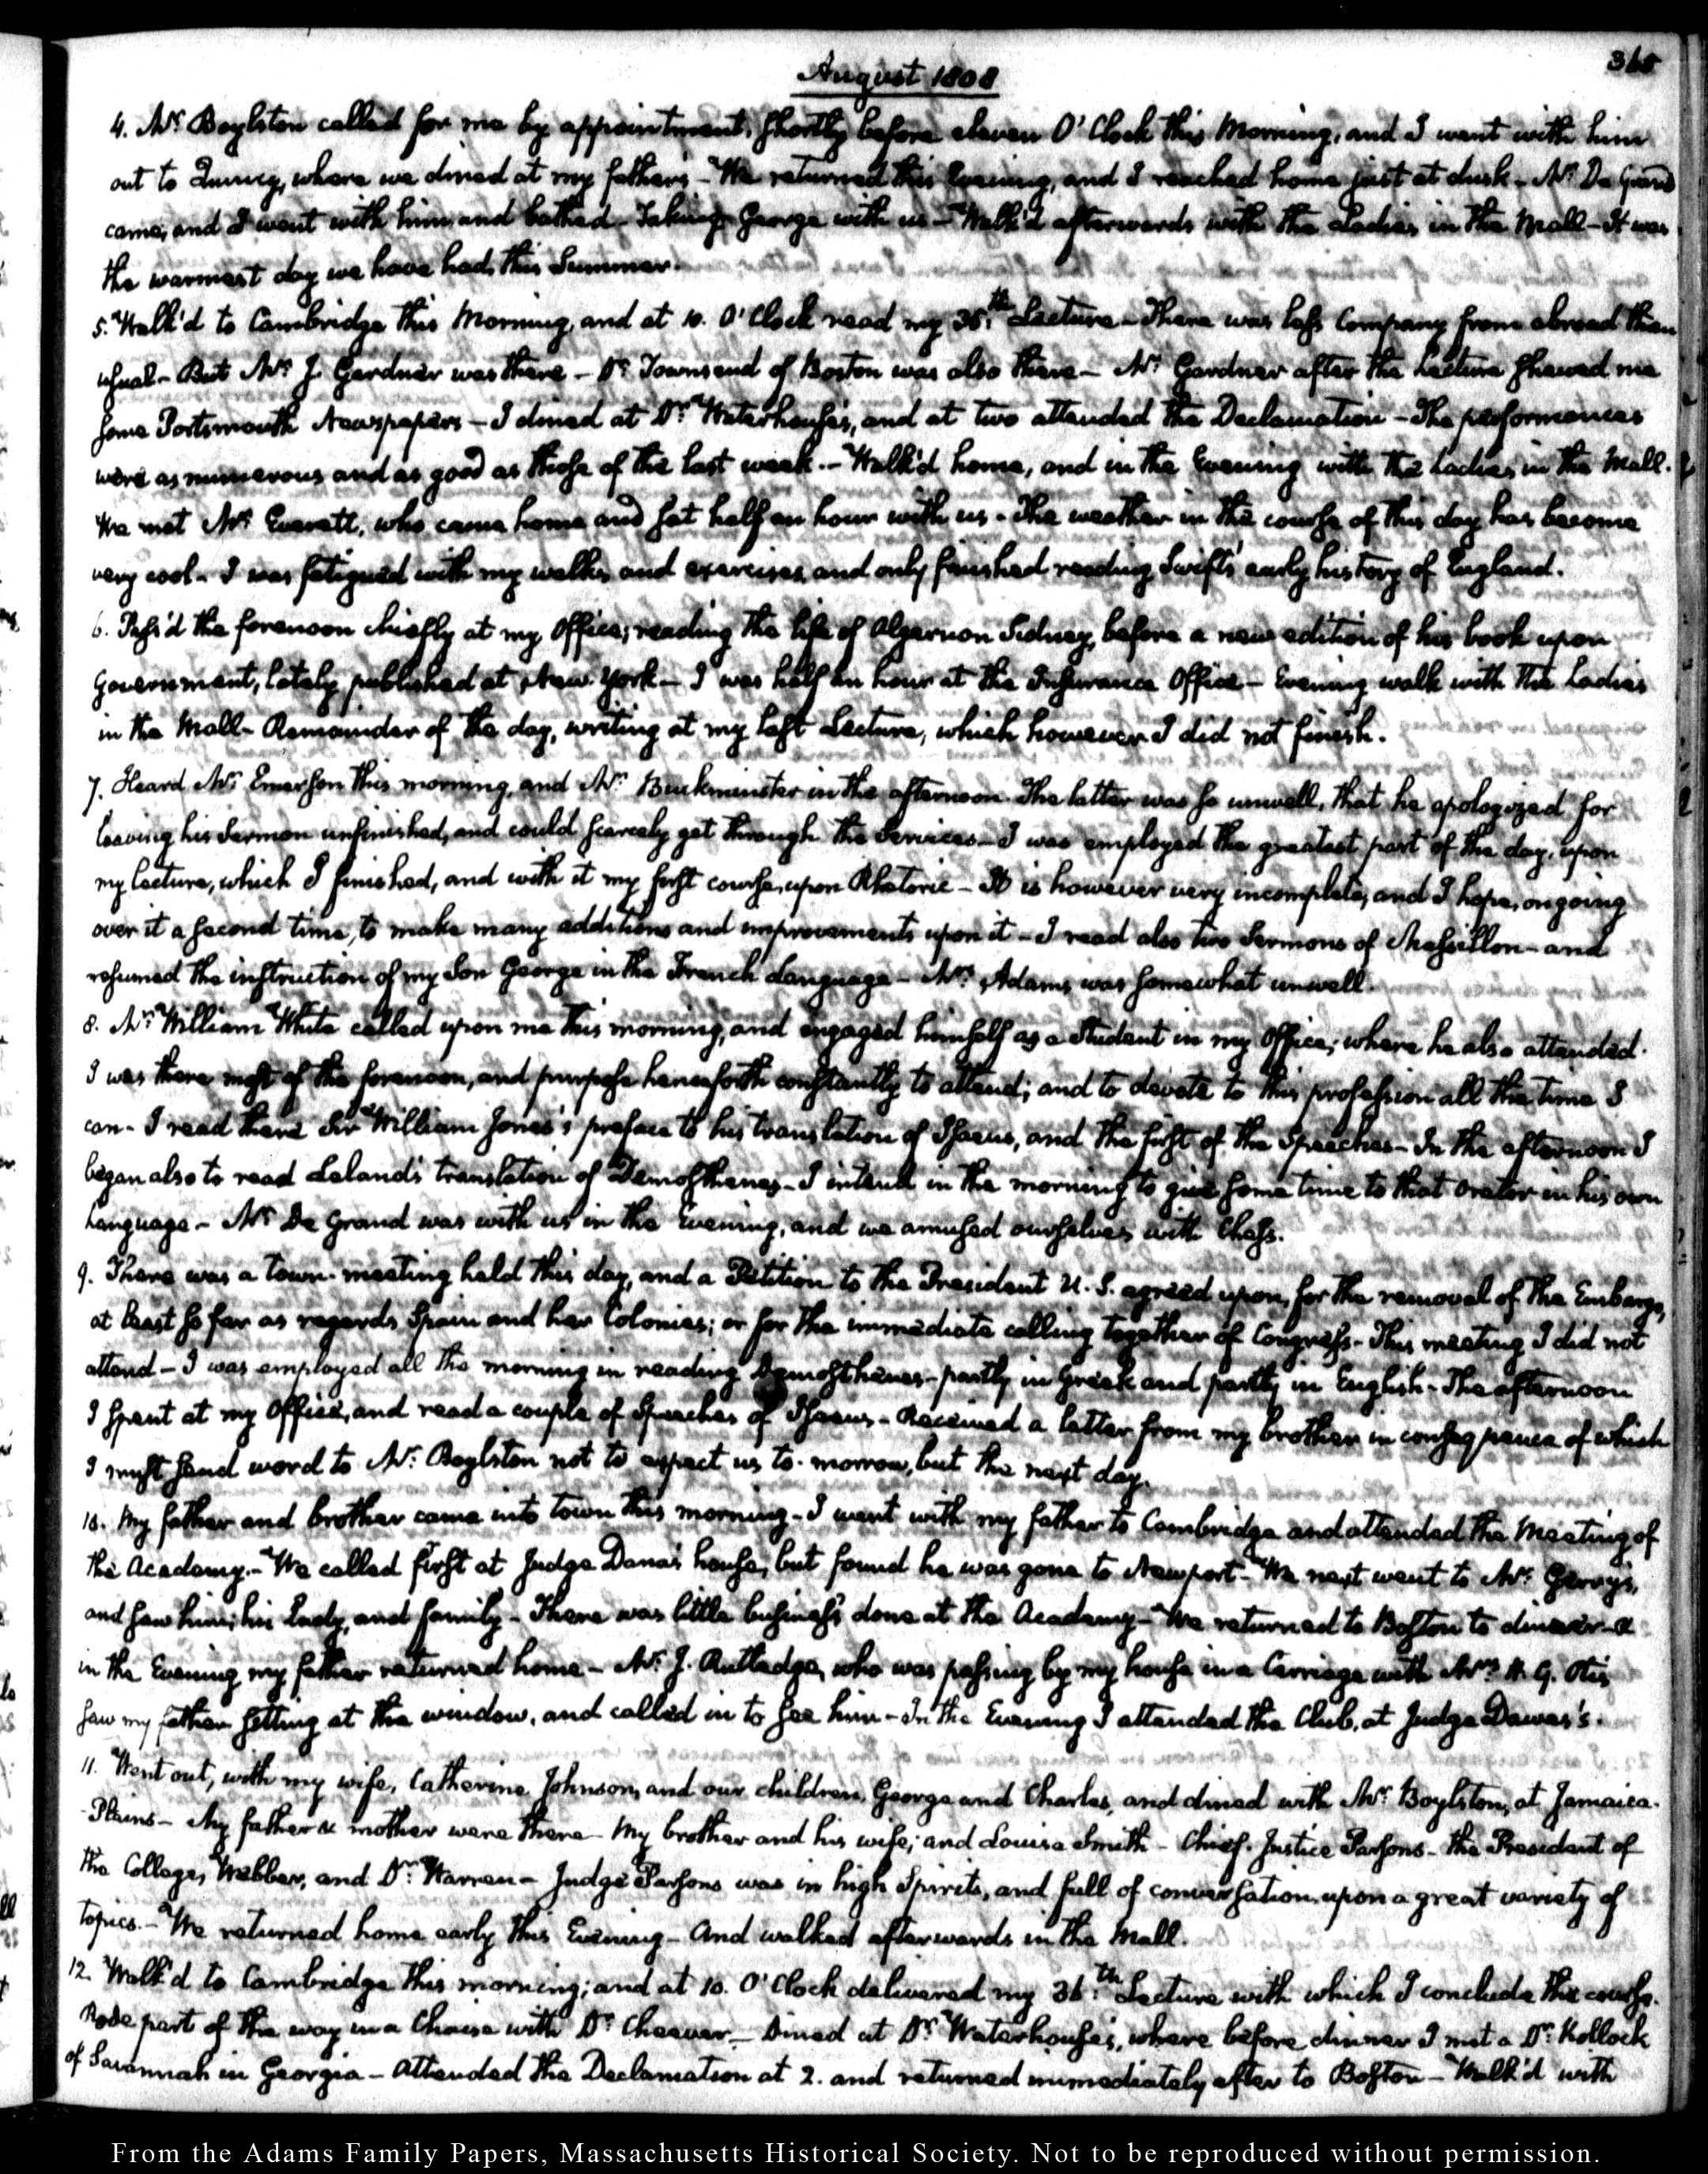 August 1808
365
4. Mr. Boylston called for me by appointment, shortly before eleven O'Clock this Morning, and I went with him
out to Quincy, where we dined at my father's - We returned this Evening, and I reached home just at dusk - Mr. De Grand
came, and I went with him and bathed - Taking George with us - Walk'd afterwards with the Ladies in the Mall - It was
the warmest day we have had, this Summer.
5. Walk'd to Cambridge this Morning, and at 10. O'Clock read my 35th. Lecture - There was less Company from abroad than
usual - But Mr. J. Gardner was there - Dr. Townsend of Boston was also there - Mr. Gardner after the Lecture shewed me
some Portsmouth Newspapers - I dined at Dr. Waterhouse's, and at two attended the Declamation - The performances
were as numerous and as good as those of the last week. - Walk'd home, and in the Evening with the Ladies in the Mall.
We met Mr. Everett, who came home and sat half an hour with us - The weather in the course of this day has become
very cool - I was fatigued with my walks, and exercises, and only finished reading Swift's early history of England.
6. Pass'd the forenoon chiefly at my Office; reading the life of Algernon Sidney, before a new edition of his book upon
Government, lately published at New-York - I was half an hour at the Insurance Office - Evening walk with the Ladies
in the Mall - Remainder of the day, writing at my last Lecture, which however I did not finish.
7. Heard Mr. Emerson this morning, and Mr. Buckminster in the afternoon. The latter was so unwell, that he apologized for
leaving his Sermon unfinished, and could scarcely get through the Services - I was employed the greatest part of the day, upon
my lecture, which I finished, and with it my first course, upon Rhetoric - It is however very incomplete, and I hope, on going
over it a second time, to make many additions and improvements upon it - I read also two Sermons of Massillon - and
resumed the instruction of my Son George in the French Language - Mrs. Adams was somewhat unwell.
8. Mr. William White called upon me this morning, and engaged himself as a Student in my Office; where he also attended.
I was there most of the forenoon, and purpose henceforth constantly to attend; and to devote to this profession all the time I
can - I read there Sir William Jones's preface to his translation of Isaeus, and the first of the Speeches - In the afternoon I
began also to read Leland's translation of Demosthenes - I intend in the morning to give some time to that Orator in his own
Language - Mr. De Grand was with us in the Evening, and we amused ourselves with Chess.
9. There was a town-meeting held this day, and a Petition to the President U.S. agreed upon, for the removal of the Embargo,
at least so far as regards Spain and her Colonies; or for the immediate calling together of Congress - This meeting I did not
attend - I was employed all the morning in reading Demosthenes - partly in Greek and partly in English - The afternoon
I spent at my Office, and read a couple of Speeches of Isaeus - Received a letter from my brother in consequence of which
I must send word to Mr. Boylston not to expect us to-morrow, but the next day.
10. My father and brother came into town this morning - I went with my father to Cambridge and attended the Meeting of
the Academy. - We called first at Judge Dana's house, but found he was gone to Newport - We next went to Mr. Gerry's,
and saw him, his Lady, and family - There was little business done at the Academy - We returned to Boston to dinner - &
in the Evening my father returned home - Mr. J. Rutledge, who was passing by my house in a Carriage with Mrs. H. G. Otis
saw my father sitting at the window, and called in to see him - In the Evening I attended the Club, at Judge Dawes's.
11. Went out, with my wife, Catherine Johnson, and our children, George and Charles, and dined with Mr. Boylston, at Jamaica-
Plains - My father & mother were there - My brother and his wife; and Louisa Smith - Chief-Justice Parsons - the President of
the College, Webber, and Dr. Warren - Judge Parsons was in high Spirits, and full of conversation, upon a great variety of
topics. - We returned home early this Evening - And walked afterwards in the Mall.
12. Walk'd to Cambridge this morning; and at 10. O'Clock delivered my 36th. Lecture with which I conclude the course.
Rode part of the way in a Chaise with Dr. Cheever - Dined at Dr. Waterhouse's, where before dinner I met a Dr. Kollock
of Savannah in Georgia - Attended the Declamation at 2. and returned immediately after to Boston - Walk'd with
From the Adams Family Papers, Massachusetts Historical Society. Not to be reproduced without permission.